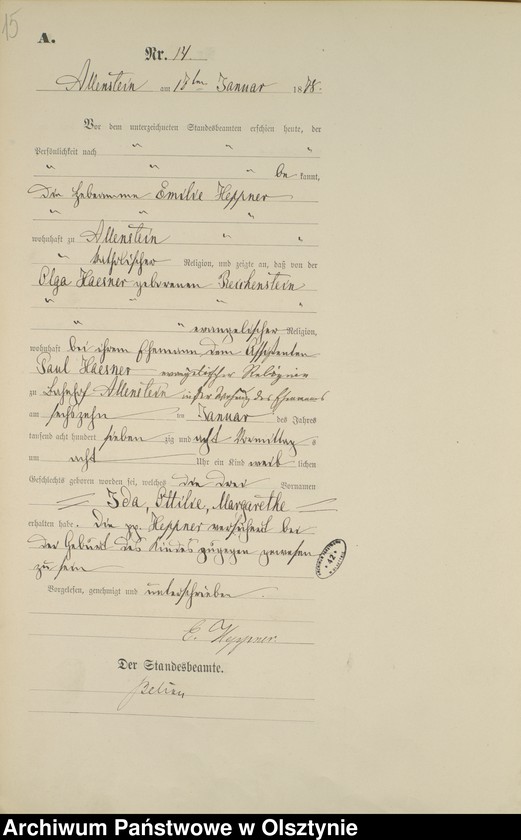 15
A.
Nr. 14.
Allenstein am 17ten Januar 1878.
Vor dem unterzeichneten Standesbeamten erschien heute, der
Persönlichkeit nach
be kannt,
die Hebeamme Emilie Heppner
wohnhaft zu Allenstein
katholischer Religion, und zeigte an, daß von der
Olga Haesner geborenen Reichenstein
evangelischer Religion,
wohnhaft bei ihrem Ehemann dem Assistenten
Paul Haesner evangelischer Religion
zu Bahnhof Allenstein in der Wohnung des Ehemanns
am sechszehn ten Januar des Jahres
tausend acht hundert sieben zig und acht Vormittag s
um acht Uhr ein Kind weib lichen
Geschlechts geboren worden sei, welches die drei Vornamen
Ida, Ottilie, Margarethe
erhalten habe. Die pp. Heppner versichert bei
der Geburt des Kindes zugegen gewesen
zu sein
Vorgelesen, genehmigt und unterschrieben.
E. Heppner.
Der Standesbeamte.
Archiwum Państwowe w Olsztynie